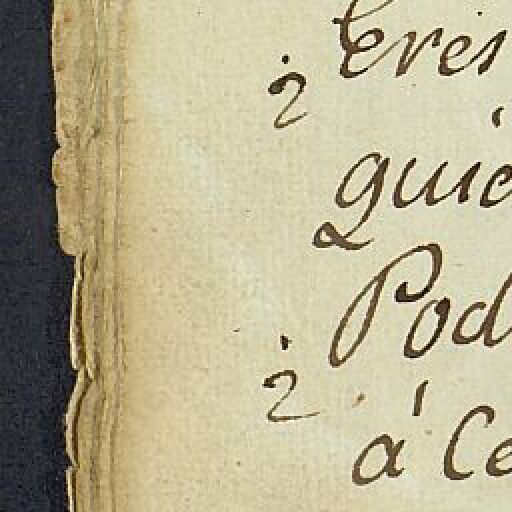 ¿ Eres
quie
¿ Pod
á Ce